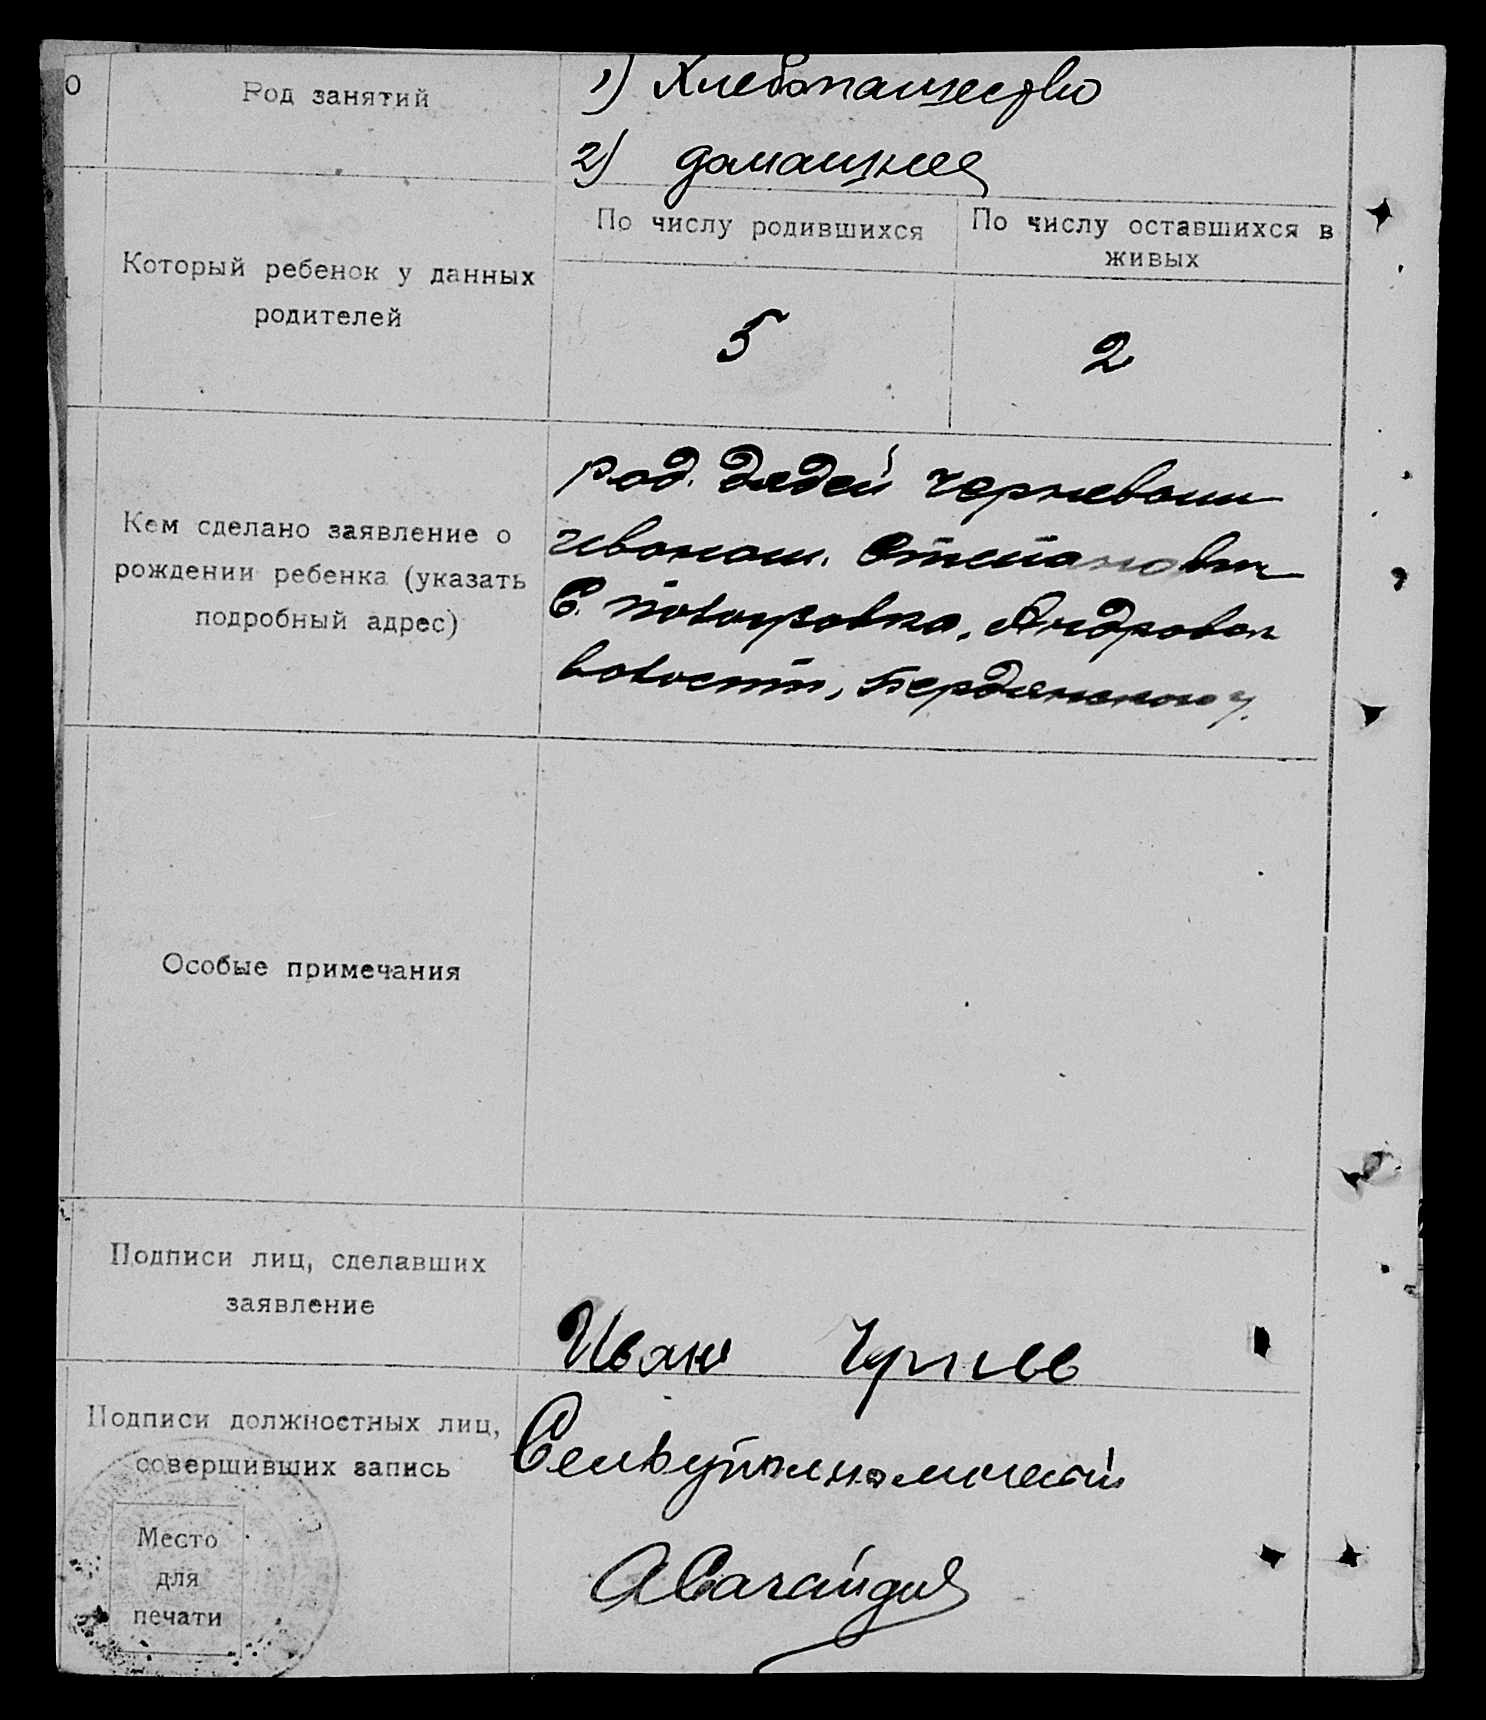 о
Род занятий
1) Хлебопашество
2) домашнее
Который ребенок у данных
родителей
По числу родившихся
По числу оставшихся в
живых
5
2
Кем сделано заявление о
рождении ребенка (указать
подробный адрес)
род. дядей Черневым
Иваном. Степанович
С. Андровск
волости, Бердянского у.
Особые примечания
Подписи лиц, сделавших
заявление
Иван
Подписи должностных лиц,
совершивших запись
Место
для
печати